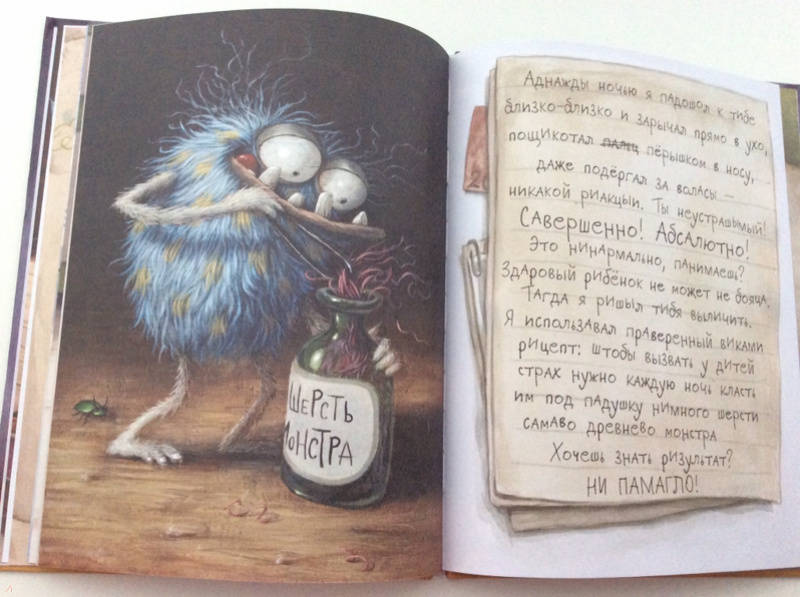 ШЕРСТЬ
МОНСТРА
Аднажды ночью я падошол к тибе
близко-близко и зарычал прямо в ухо,
пощИкотал палец пёрышком в носу,
даже подёргал за воласы –
никакой риакцыи. Ты неустрашымый!
Савершенно! Абсалютно!
Это нинармально, панимаешь?
Здаровый рибёнок не может не бояца.
Тагда я ришыл тибя выличить.
Я использавал праверенный виками
рицепт: штобы вызвать у дитей
страх нужно каждую ночь класть
им под падушку нимного шерсти
самаво древнево монстра
Хочешь знать ризультат?
НИ ПАМАГЛО!